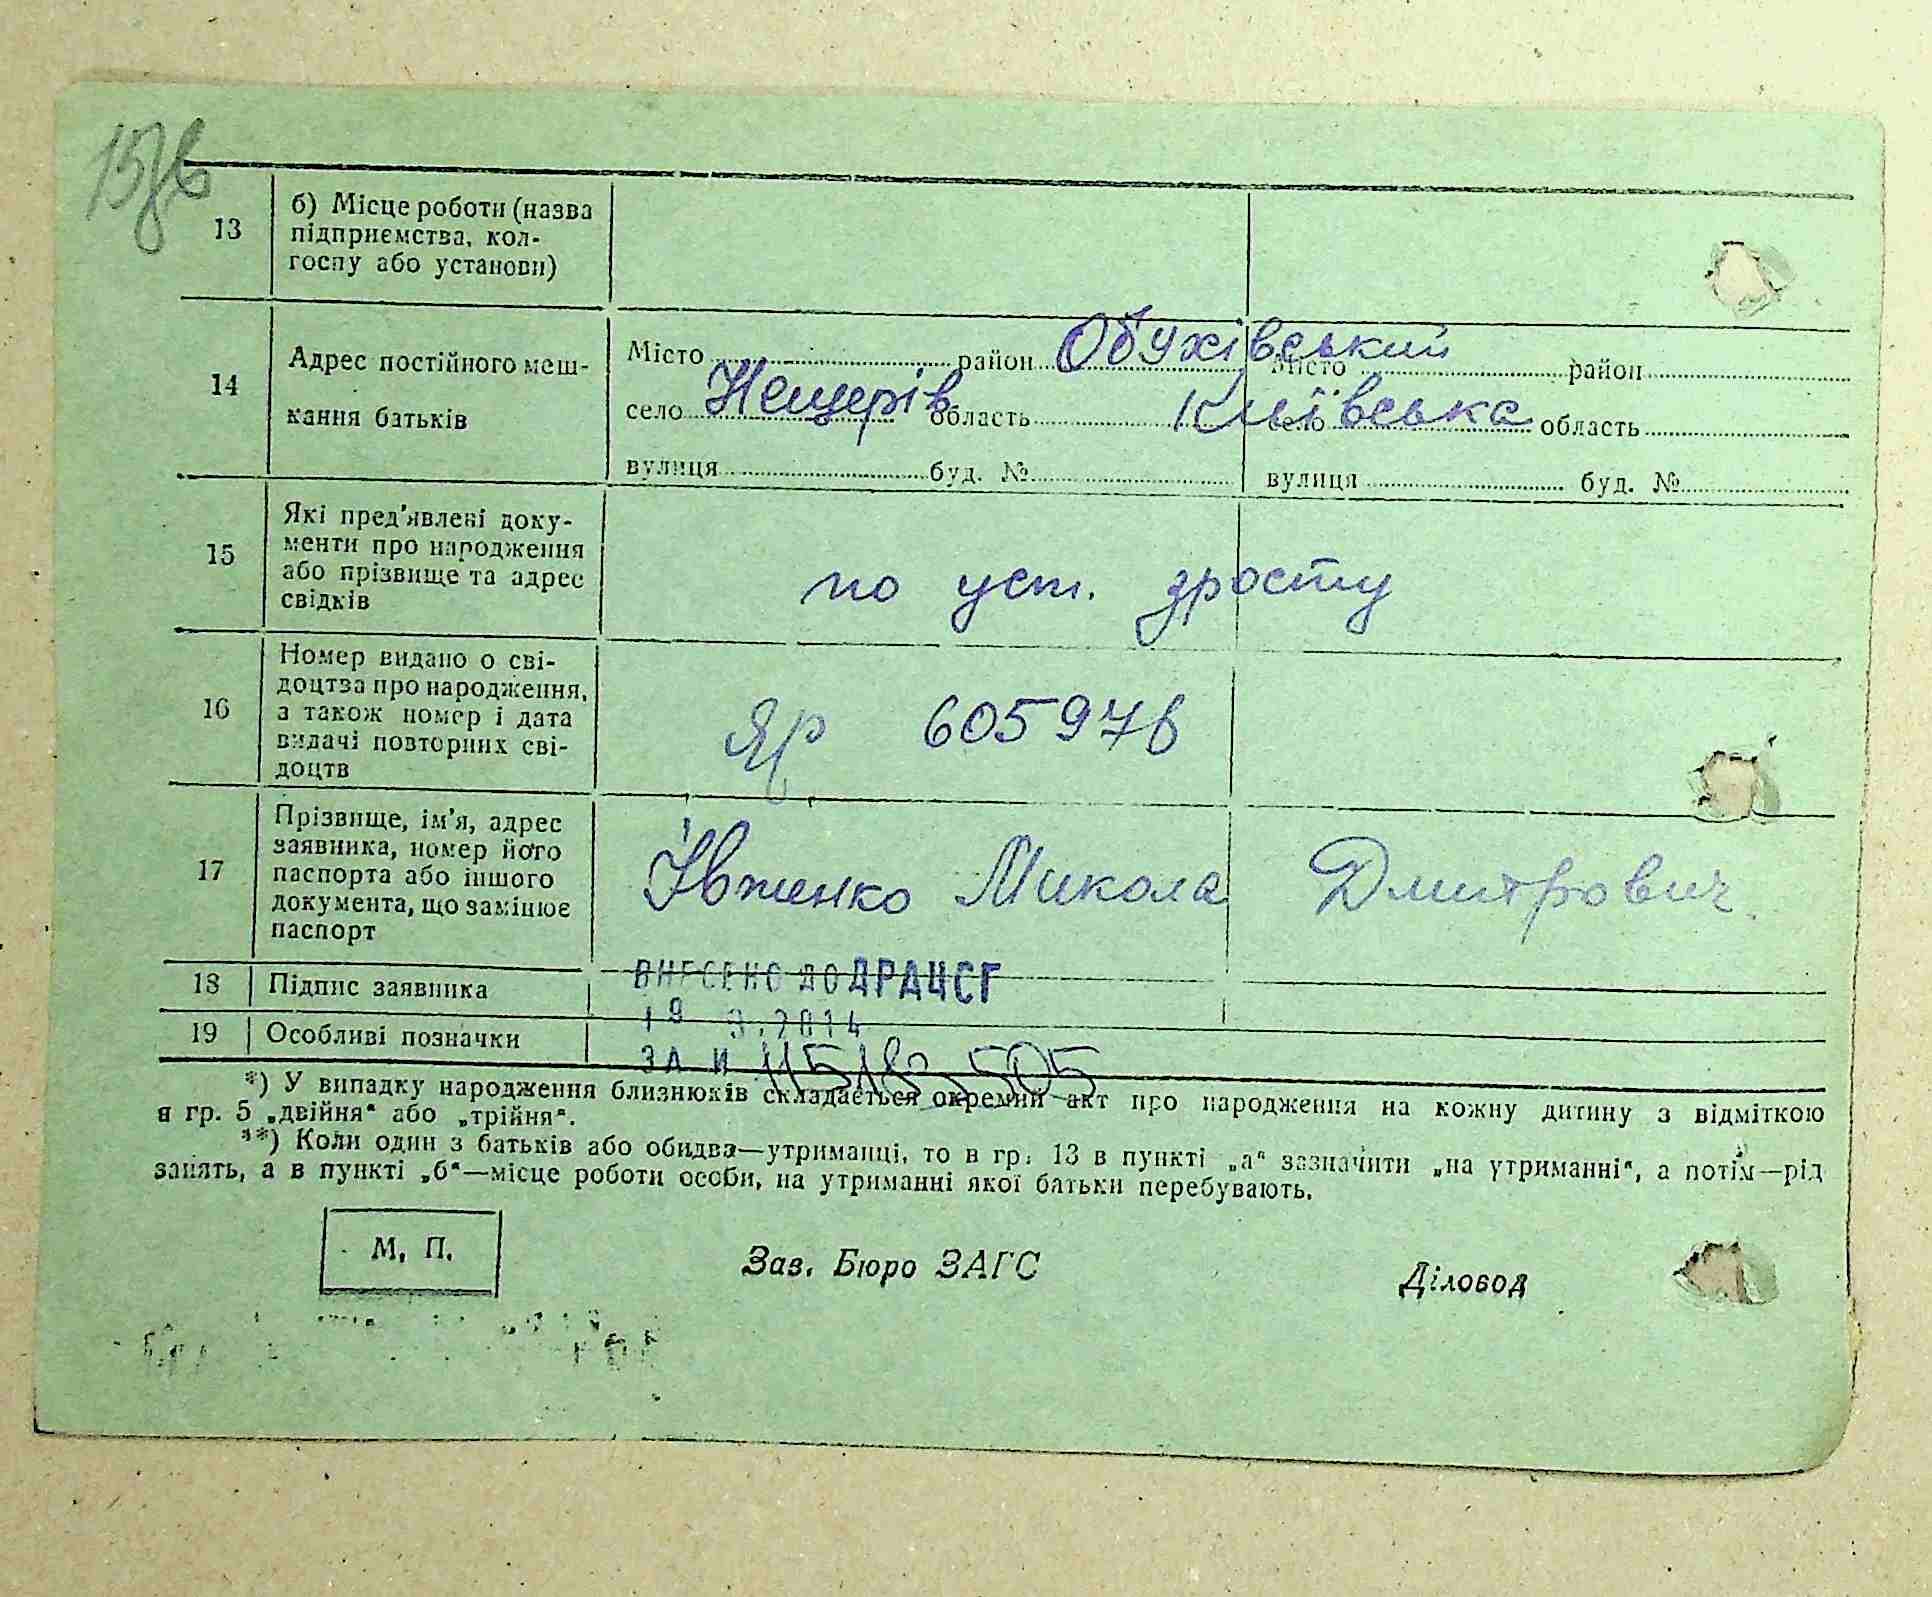 157в
13
б) Місце роботи (назва
підприємства, кол-
госпу або установи)
14
Адрес постійного меш-
кання батьків
Місто район Обухівський Місто район
село Нещерів область Київська село область
вулиця буд. № вулиця буд. №
15
Які пред'явлені доку-
менти про народження
або прізвище та адрес
свідків
по уст. зросту
16
Номер видано о сві-
доцтва про народження,
а також номер і дата
видачі повторних сві-
доцтв
ЯР 605976
17
Прізвище, ім'я, адрес
заявника, номер його
паспорта або іншого
документа, що замінює
паспорт
Івженко Микола Дмитрович.
18 Підпис заявника
ВНЕСЕНО ДО ДРАЦСГ
19 Особливі позначки
19 3.2014
ЗА №
*) У випадку народження близнюків складається окремий акт про народження на кожну дитину з відміткою
в гр. 5 „двійня“ або „трійня“.
**) Коли один з батьків або обидва—утриманці, то в гр. 13 в пункті „а“ зазначити „на утриманні“, а потім—рід
занять, а в пункті „б“—місце роботи особи, на утриманні якої батьки перебувають.
М. П.
Зав. Бюро ЗАГС
Діловод